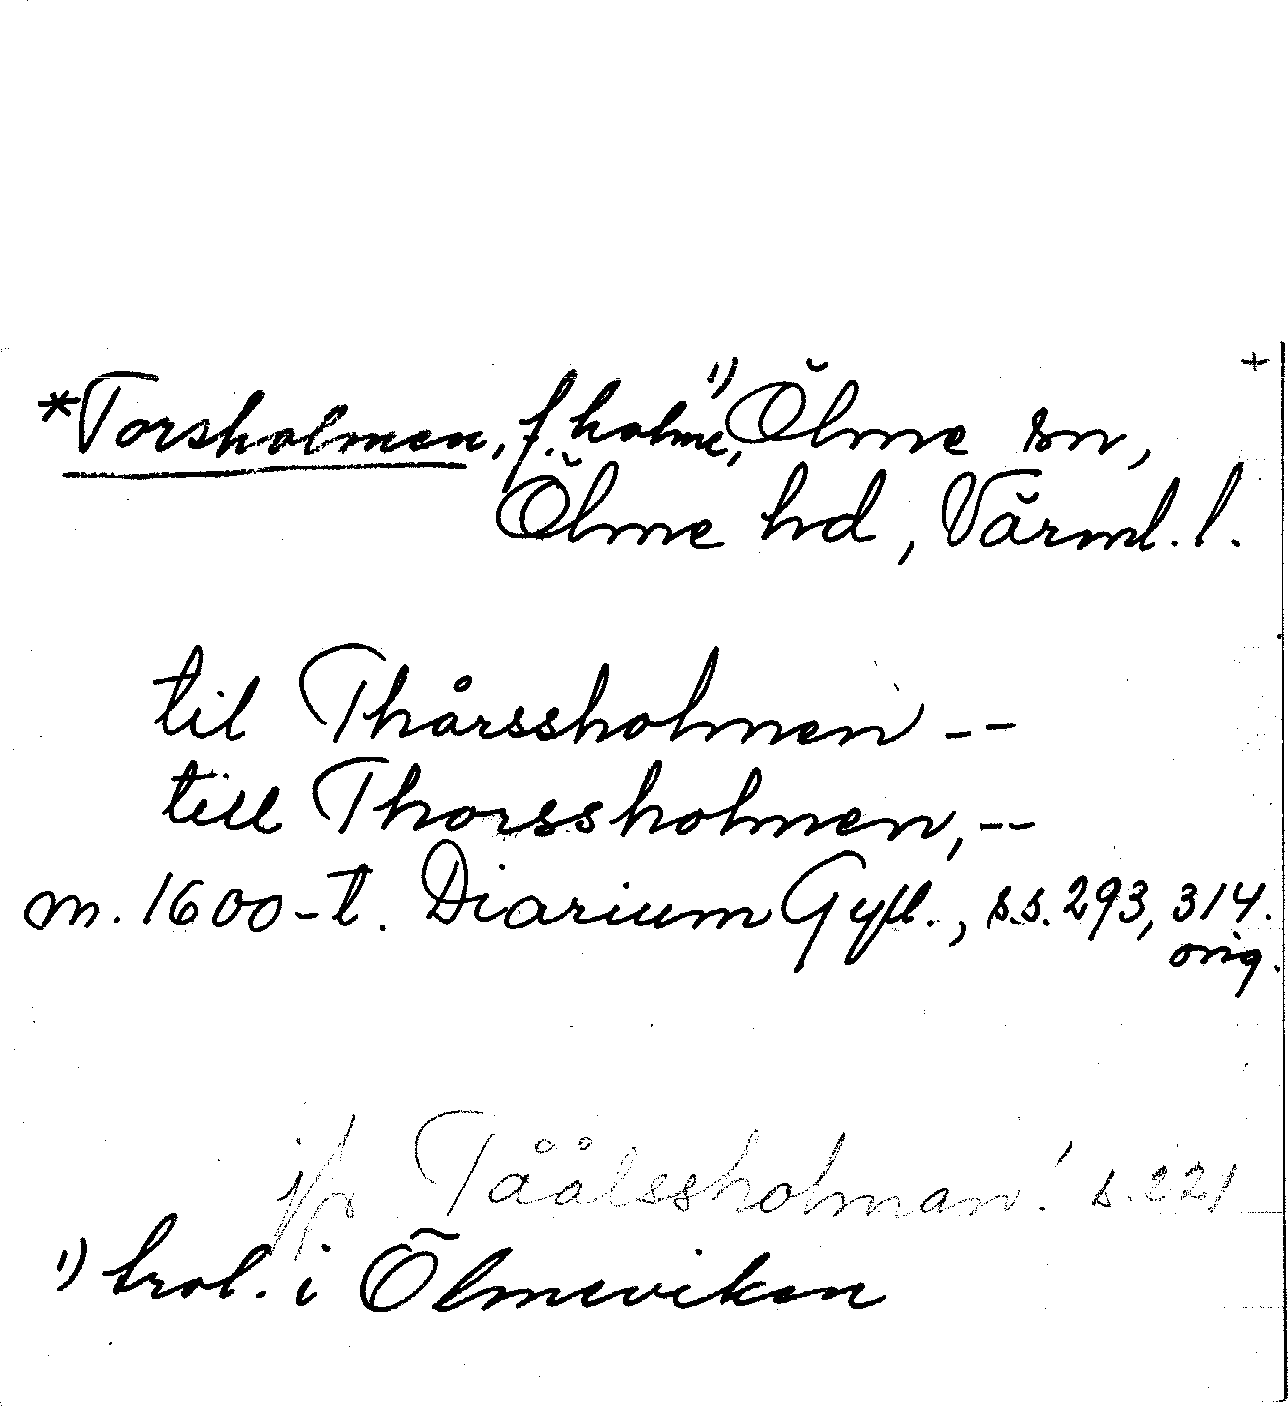 +
*Torsholmen, f. holme,¹⁾ Ölme sn,
Ölme hd, Värml. l.
til Thårssholmen --
till Thorssholmen, --
m. 1600-t. Diarium Gyll., s.s. 293, 314.
orig.
jfr Tåålssholman! s. 221
¹⁾ trol. i Ölmeviken